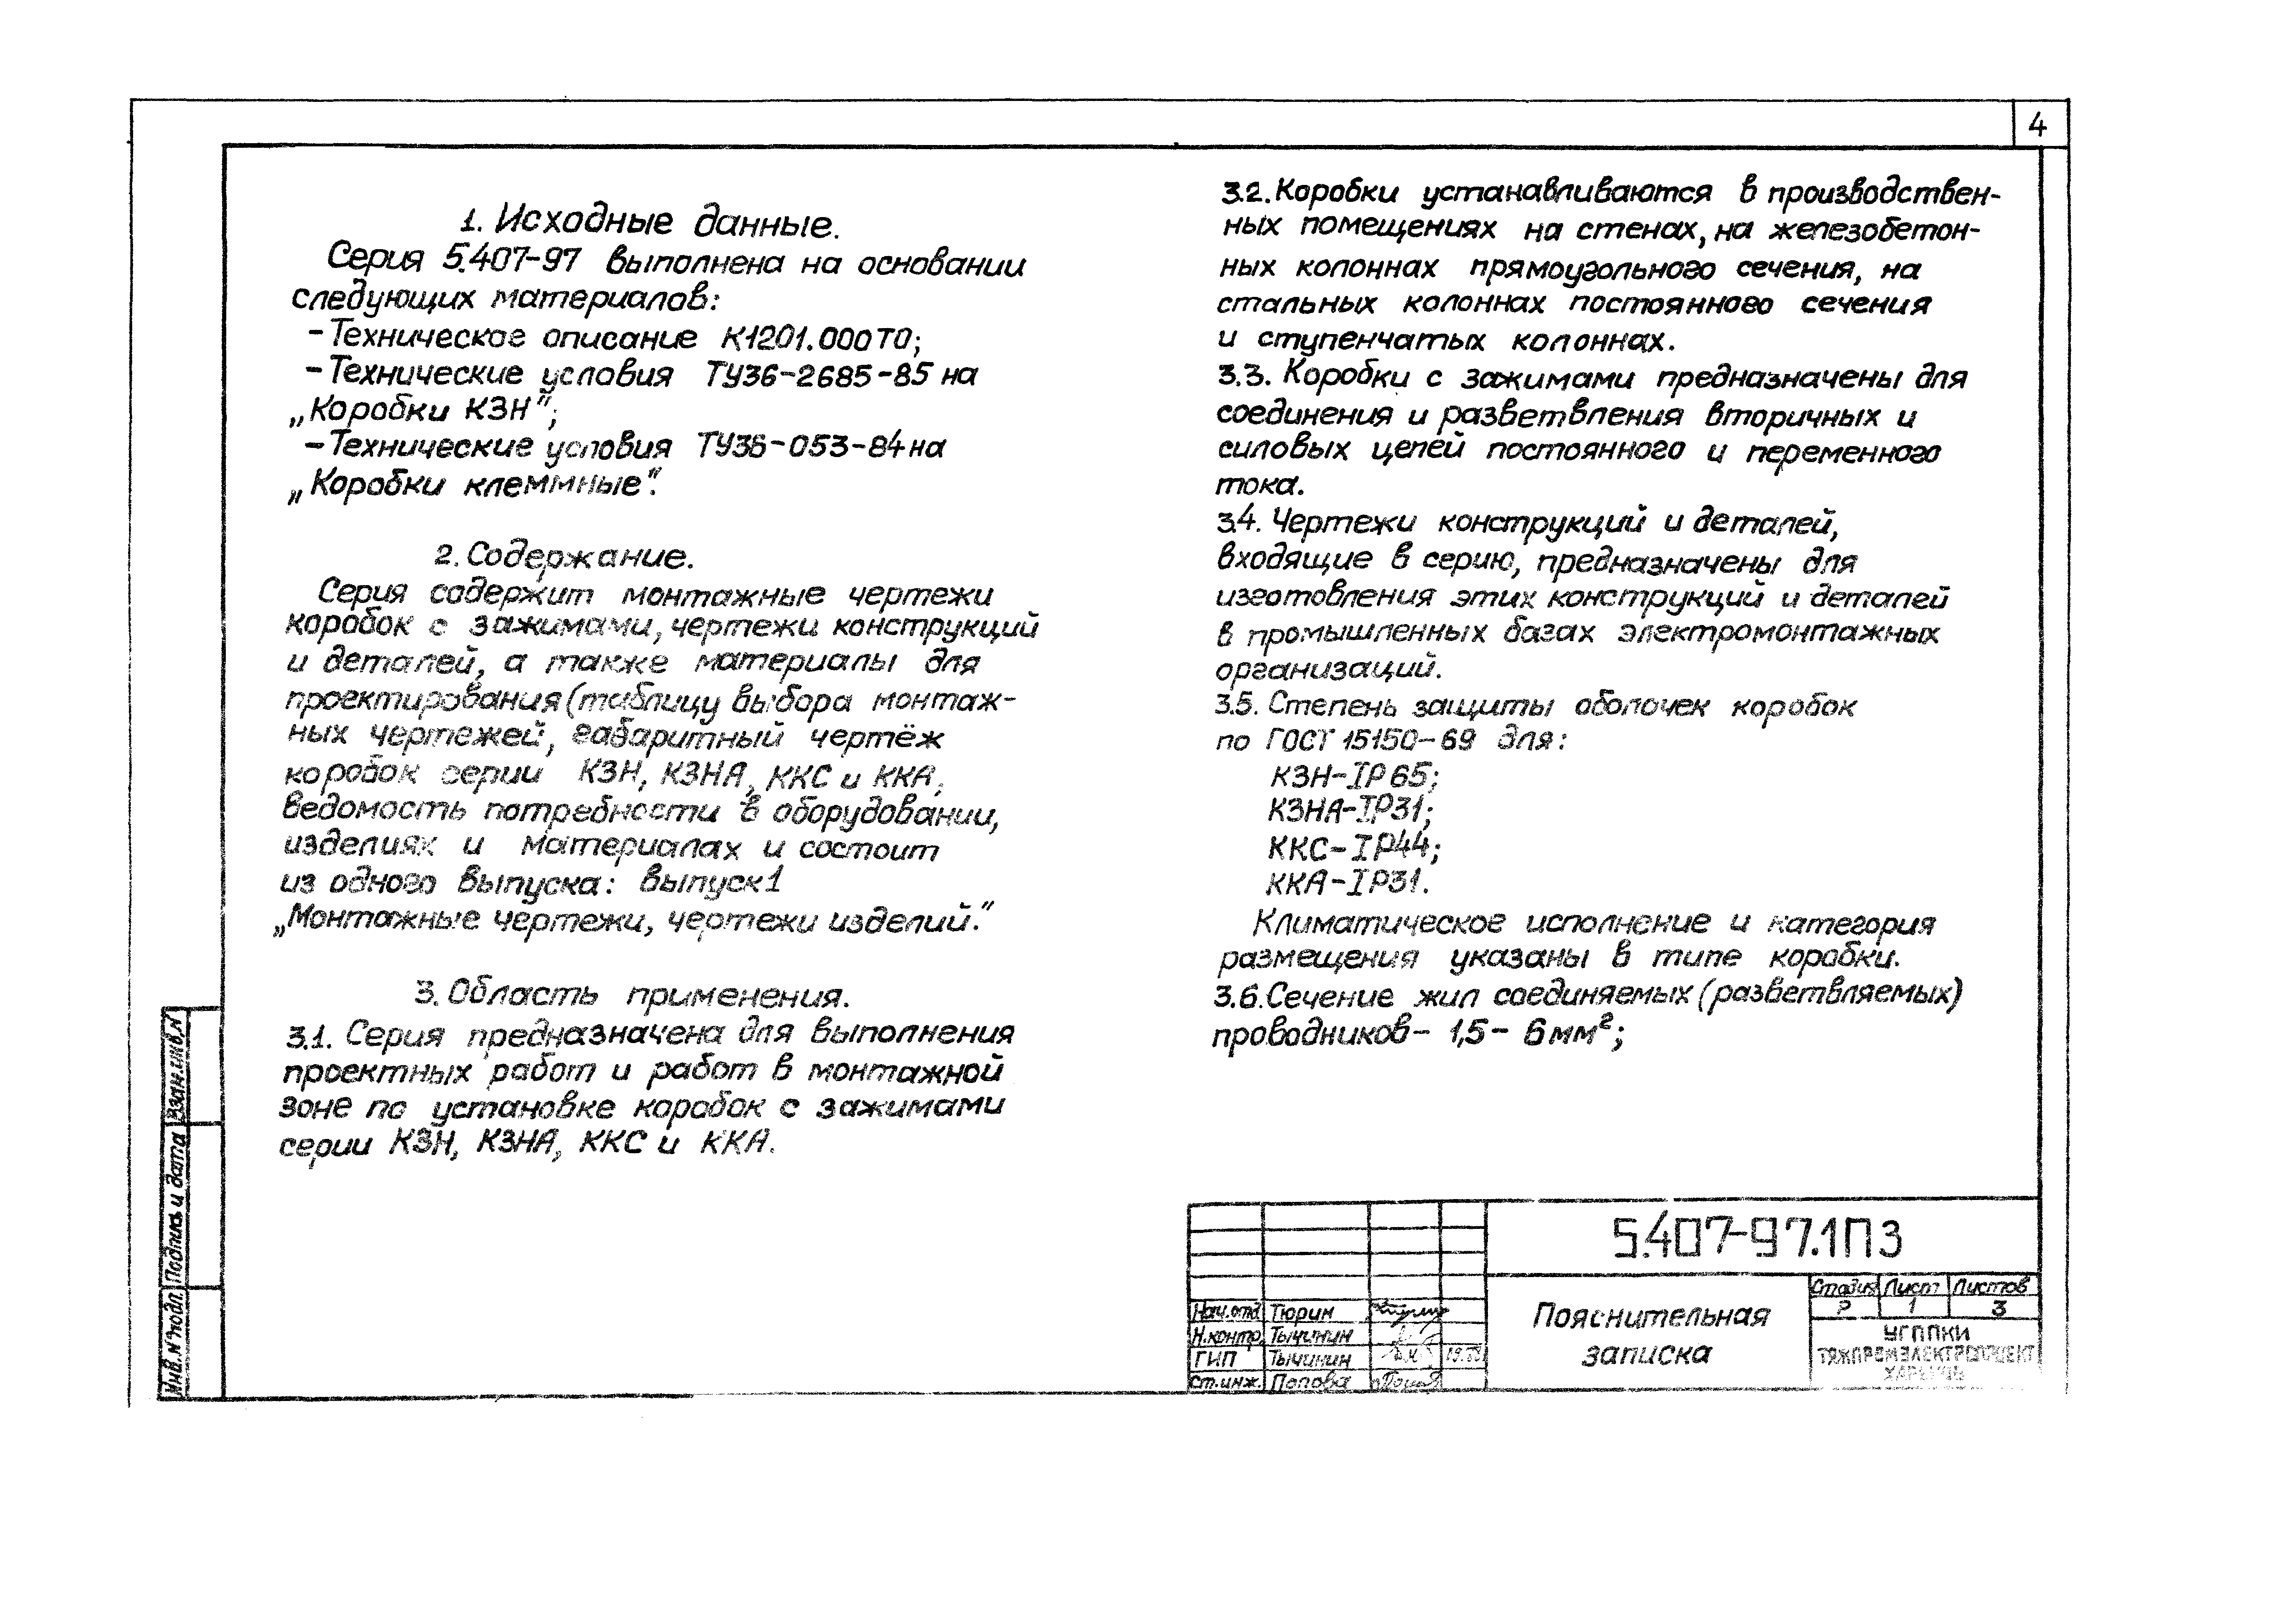 4
1. Исходные данные.
Серия 5.407-97 выполнена на основании
следующих материалов:
- Техническое описание К1201.000ТО;
- Технические условия ТУ36-2685-85 на
„Коробки КЗН";
- Технические условия ТУ36-053-84 на
„Коробки клеммные".
2. Содержание.
Серия содержит монтажные чертежи
коробок с зажимами, чертежи конструкций
и деталей, а также материалы для
проектирования (таблицу выбора монтаж-
ных чертежей, габаритный чертёж
коробок серии КЗН, КЗНА, ККС и ККА,
ведомость потребности в оборудовании,
изделиях и материалах и состоит
из одного выпуска: выпуск 1
„Монтажные чертежи, чертежи изделий."
3. Область применения.
3.1. Серия предназначена для выполнения
проектных работ и работ в монтажной
зоне по установке коробок с зажимами
серии КЗН, КЗНА, ККС и ККА.
3.2. Коробки устанавливаются в производствен-
ных помещениях на стенах, на железобетон-
ных колоннах прямоугольного сечения, на
стальных колоннах постоянного сечения
и ступенчатых колоннах.
3.3. Коробки с зажимами предназначены для
соединения и разветвления вторичных и
силовых цепей постоянного и переменного
тока.
3.4. Чертежи конструкций и деталей,
входящие в серию, предназначены для
изготовления этих конструкций и деталей
в промышленных базах электромонтажных
организаций.
3.5. Степень защиты оболочек коробок
по ГОСТ 15150-69 для:
КЗН-IP65;
КЗНА-IP31;
ККС-IP44;
ККА-IP31.
Климатическое исполнение и категория
размещения указаны в типе коробки.
3.6. Сечение жил соединяемых (разветвляемых)
проводников - 1,5 - 6 мм²;
Взам.инв.N
Подпись и дата
Инв.N°подл.
5.407-97.1ПЗ
Нач.отд. Тюрин
Н.контр. Тычинин
ГИП Тычинин
Ст.инж. Попова
Пояснительная
записка
Стадия Лист Листов
Р 1 3
УГППКИ
ТЯЖПРОМЭЛЕКТРОПРОЕКТ
ХАРЬКОВ